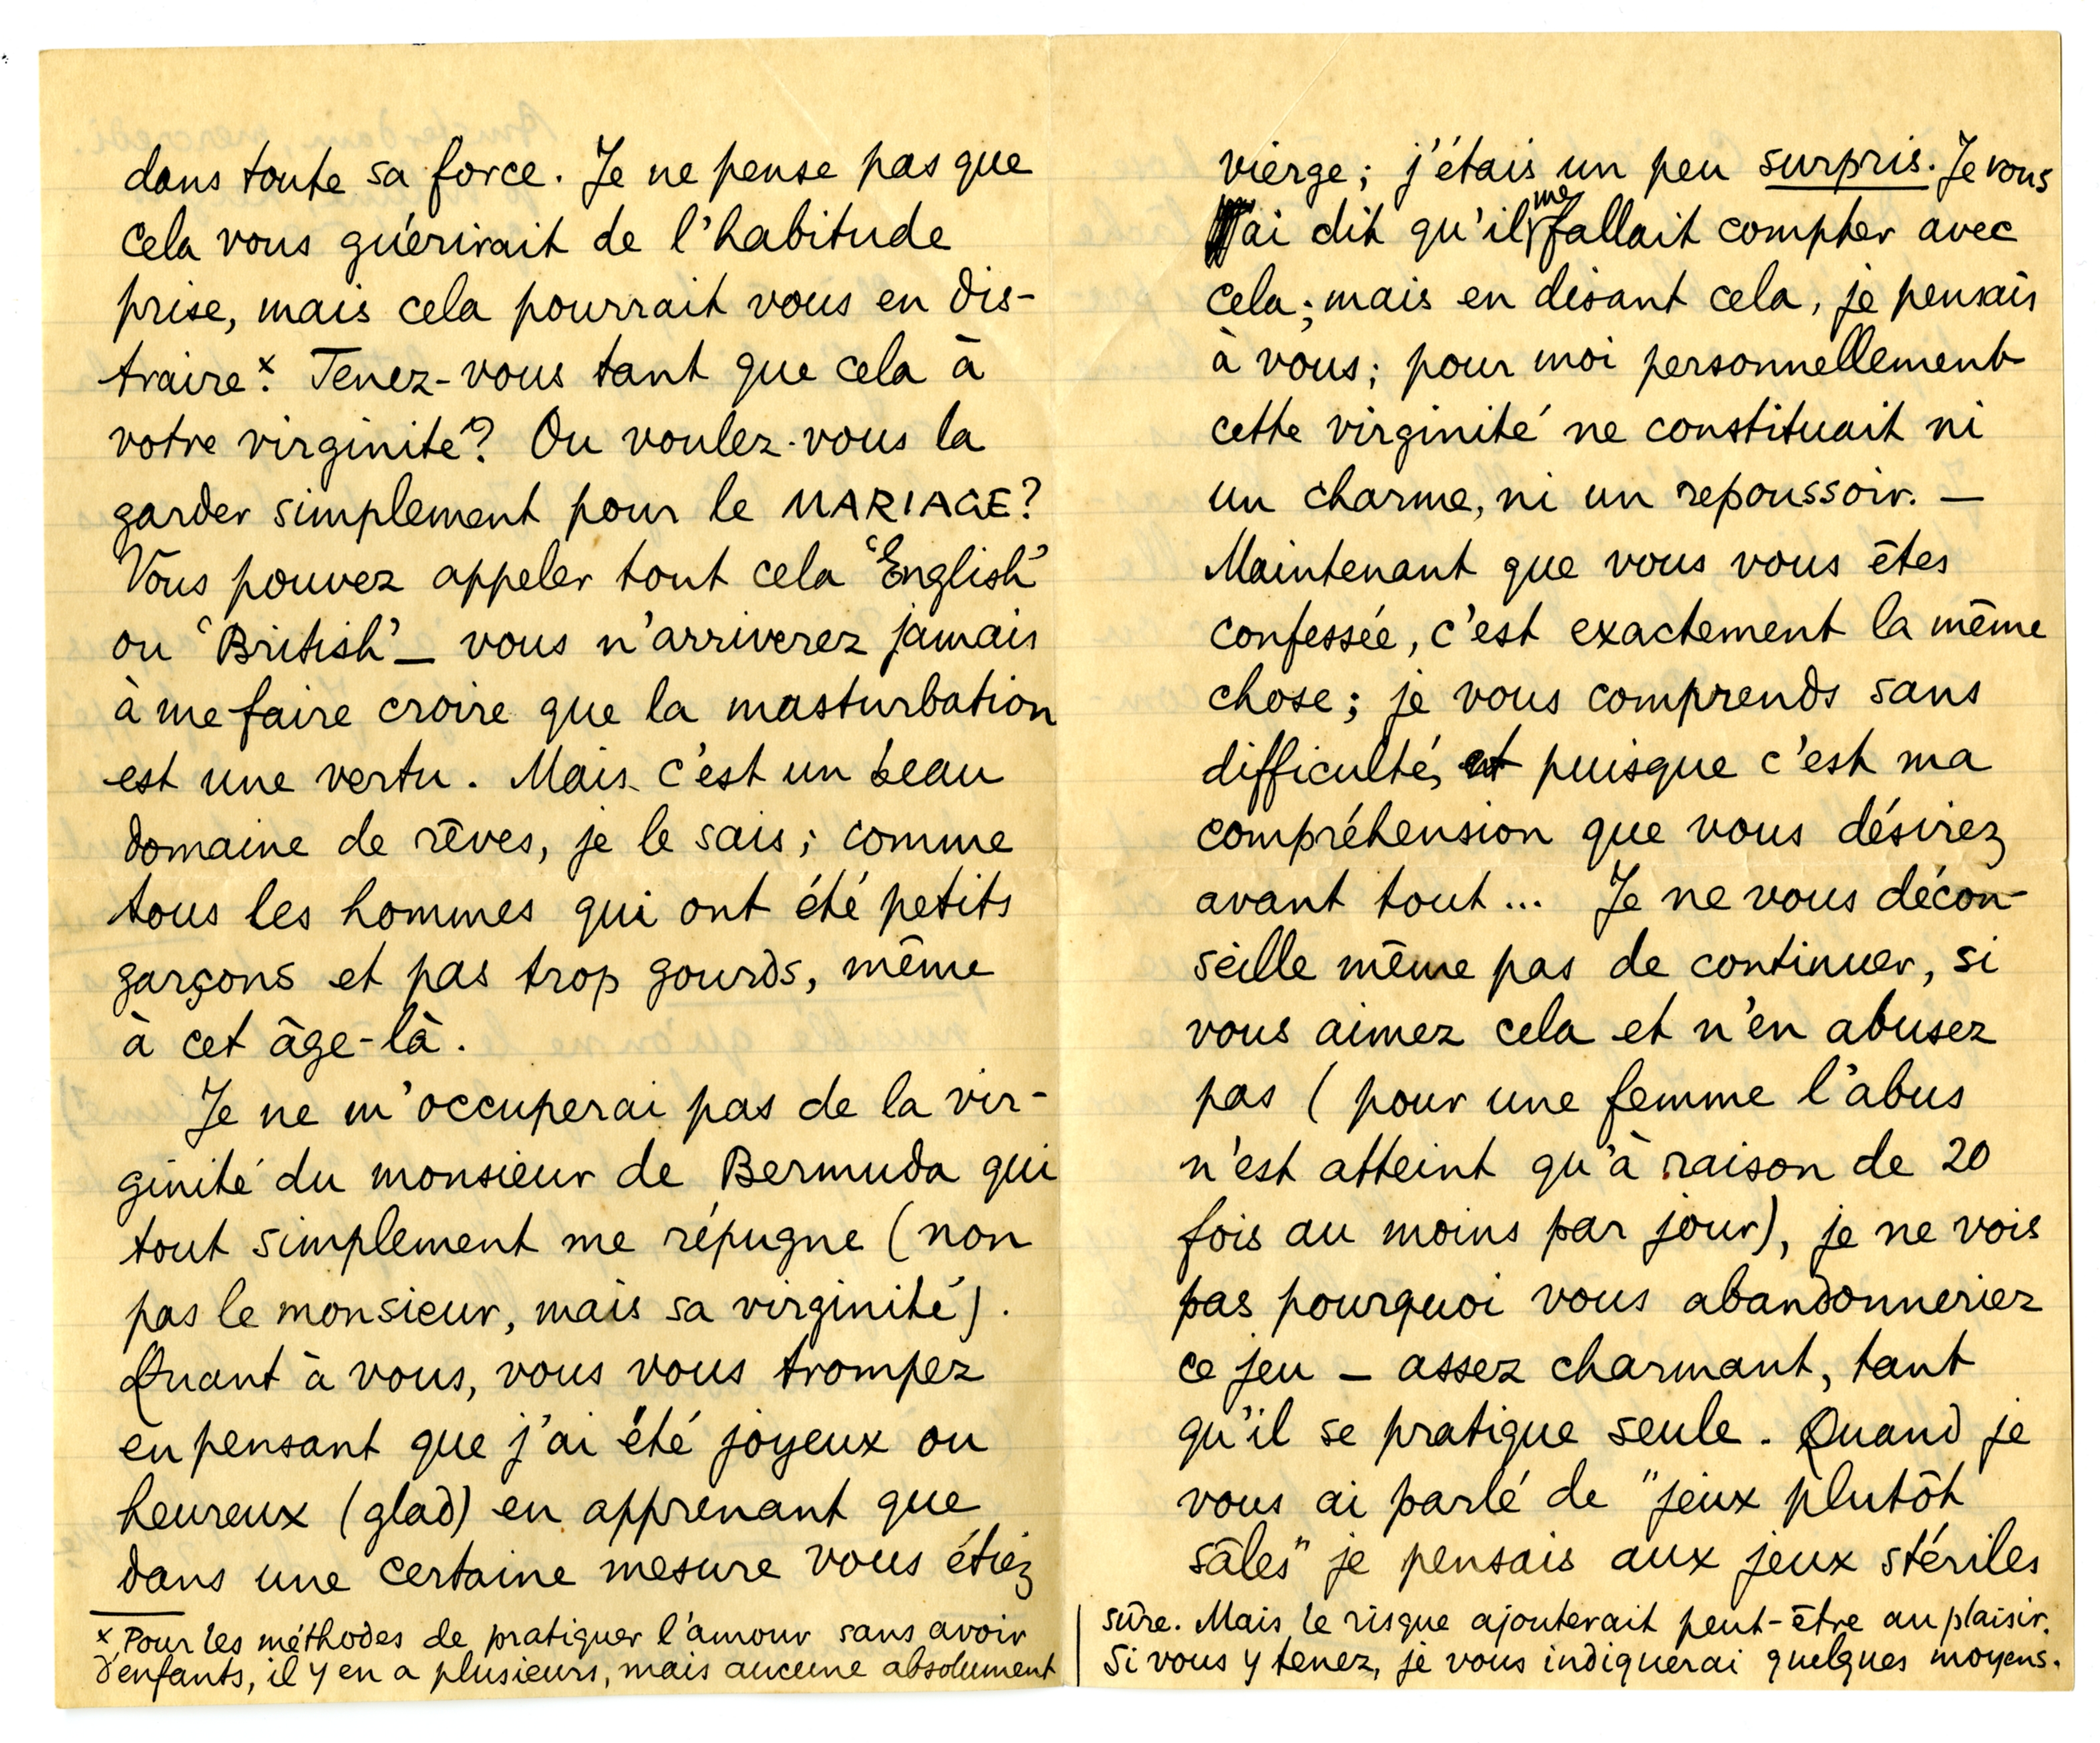 dans toute sa force. Je ne pense pas que
cela vous guérirait de l'habitude
prise, mais cela pourrait vous en dis-
traire.x Tenez-vous tant que cela à
votre virginité? Ou voulez-vous la
garder simplement pour le MARIAGE?
Vous pouvez appeler tout cela 'English'
ou 'British' — vous n'arriverez jamais
à me faire croire que la masturbation
est une vertu. Mais c'est un beau
domaine de rêves, je le sais; comme
tous les hommes qui ont été petits
garçons et pas trop gourds, même
à cet âge-là.
Je ne m'occuperai pas de la vir-
ginité du monsieur de Bermuda qui
tout simplement me répugne (non
pas le monsieur, mais sa virginité).
Quant à vous, vous vous trompez
en pensant que j'ai été joyeux ou
heureux (glad) en apprenant que
dans une certaine mesure vous étiez
x Pour les méthodes de pratiquer l'amour sans avoir
d'enfants, il y en a plusieurs, mais aucune absolument
vierge; j'étais un peu surpris. Je vous
ai dit qu'il me fallait compter avec
cela; mais en disant cela, je pensais
à vous; pour moi personnellement
cette virginité ne constituait ni
un charme, ni un repoussoir. —
Maintenant que vous vous êtes
confessée, c'est exactement la même
chose; je vous comprends sans
difficulté, et puisque c'est ma
compréhension que vous désirez
avant tout... Je ne vous décon-
seille même pas de continuer, si
vous aimez cela et n'en abusez
pas (pour une femme l'abus
n'est atteint qu'à raison de 20
fois au moins par jour), je ne vois
pas pourquoi vous abandonneriez
ce jeu — assez charmant, tant
qu'il se pratique seule. Quand je
vous ai parlé de "jeux plutôt
sâles" je pensais aux jeux stériles
sûre. Mais le risque ajouterait peut-être au plaisir.
Si vous y tenez, je vous indiquerai quelques moyens.